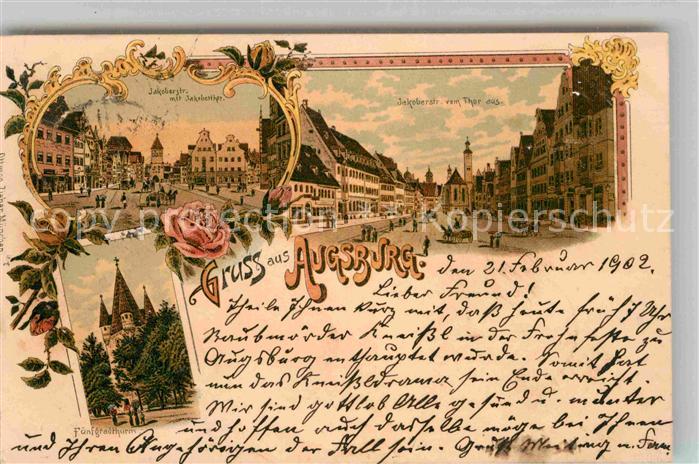 Jakoberstr.
mit Jakoberthor.
Jakoberstr. vom Thor aus.
copy protection © Kopierschutz
Gruss aus AUGSBURG.
den 21. Februar 1902.
Lieber Freund!
Theile Ihnen kurz mit, daß heute früh 7 Uhr
Raubmörder Kneißl in der Frohnfeste zu
Augsburg enthauptet wurde. Somit hat
nun das Kneißldrama sein Ende erreicht.
Wir sind gottlob Alle gesund u. munter
und hoffen auch dasselbe möge bei Ihnen
und Ihren Angehörigen der Fall sein. Gruß u. Fam.
Fünfgradthurm